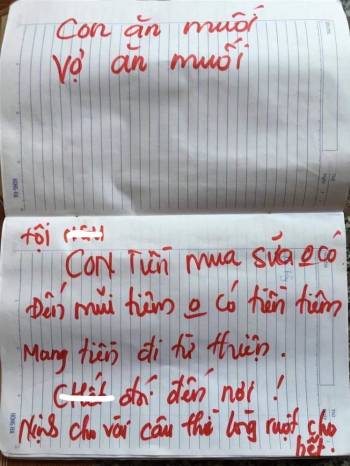 Con ăn muối
Vợ ăn muối
tội
CON TIỀN mua sữa o có
Đến mũi tiêm o có tiền tiêm
Mang tiền đi từ thiện.
đến nơi !
Nịnh cho vài câu thì lòng ruột cho
hết.